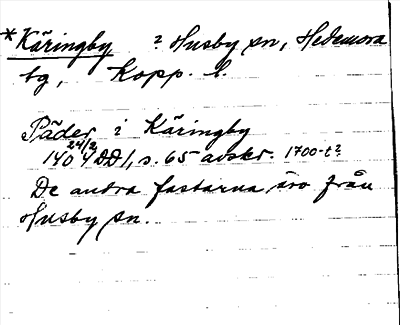 *Käringby ? Husby sn, Hedemora
tg, Kopp. l.
Päder i Käringby
1404 24/2 DD1, s. 65 avskr. 1700-t?
De andra fastarna äro från
Husby sn.